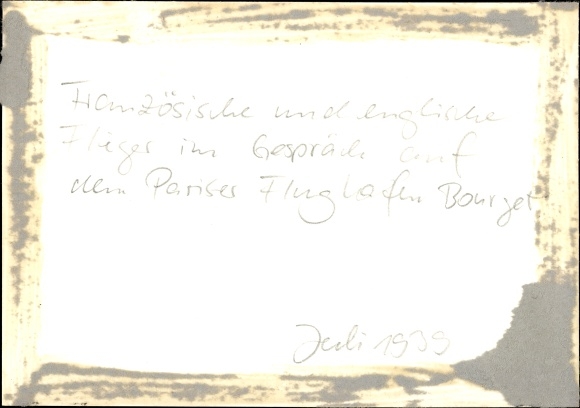 Französische und englische
Flieger im Gespräch auf
dem Pariser Flughafen Bourget
Juli 1939